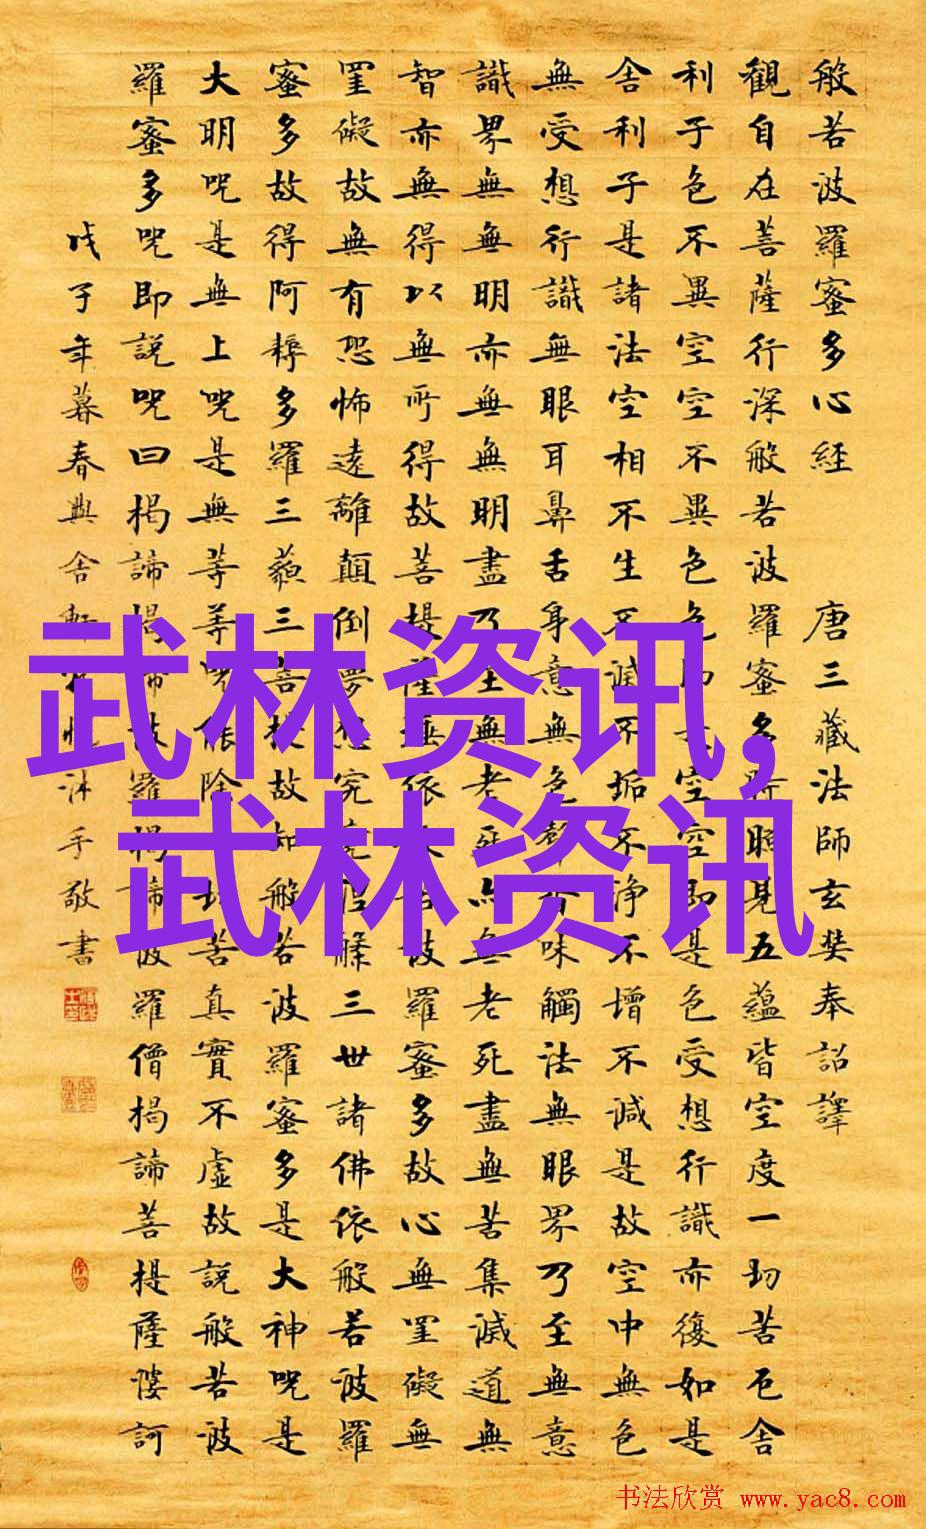 般若波羅蜜多心經 唐三藏法師玄奘奉詔譯
觀自在菩薩行深般若波羅蜜多時照見五蘊皆空度一切苦厄舍
利子色不異空空不異色色即是空空即是色受想行識亦復如是
舍利子是諸法空相不生不滅不垢不淨不增不減是故空中無色
無受想行識無眼耳鼻舌身意無色聲香味觸法無眼界乃至無意
識界無無明亦無無明盡乃至無老死亦無老死盡無苦集滅道無
智亦無得以無所得故菩提薩埵依般若波羅蜜多故心無罣礙無
罣礙故無有恐怖遠離顛倒夢想究竟涅槃三世諸佛依般若波羅
蜜多故得阿耨多羅三藐三菩提故知般若波羅蜜多是大神呪是
大明呪是無上呪是無等等呪能除一切苦真實不虛故說般若波
羅蜜多呪即說呪曰揭諦揭諦波羅揭諦波羅僧揭諦菩提薩婆訶
戊子年暮春與舍軒沐手敬書
武林资讯,
武林资讯
书法欣赏 www.yac8.com